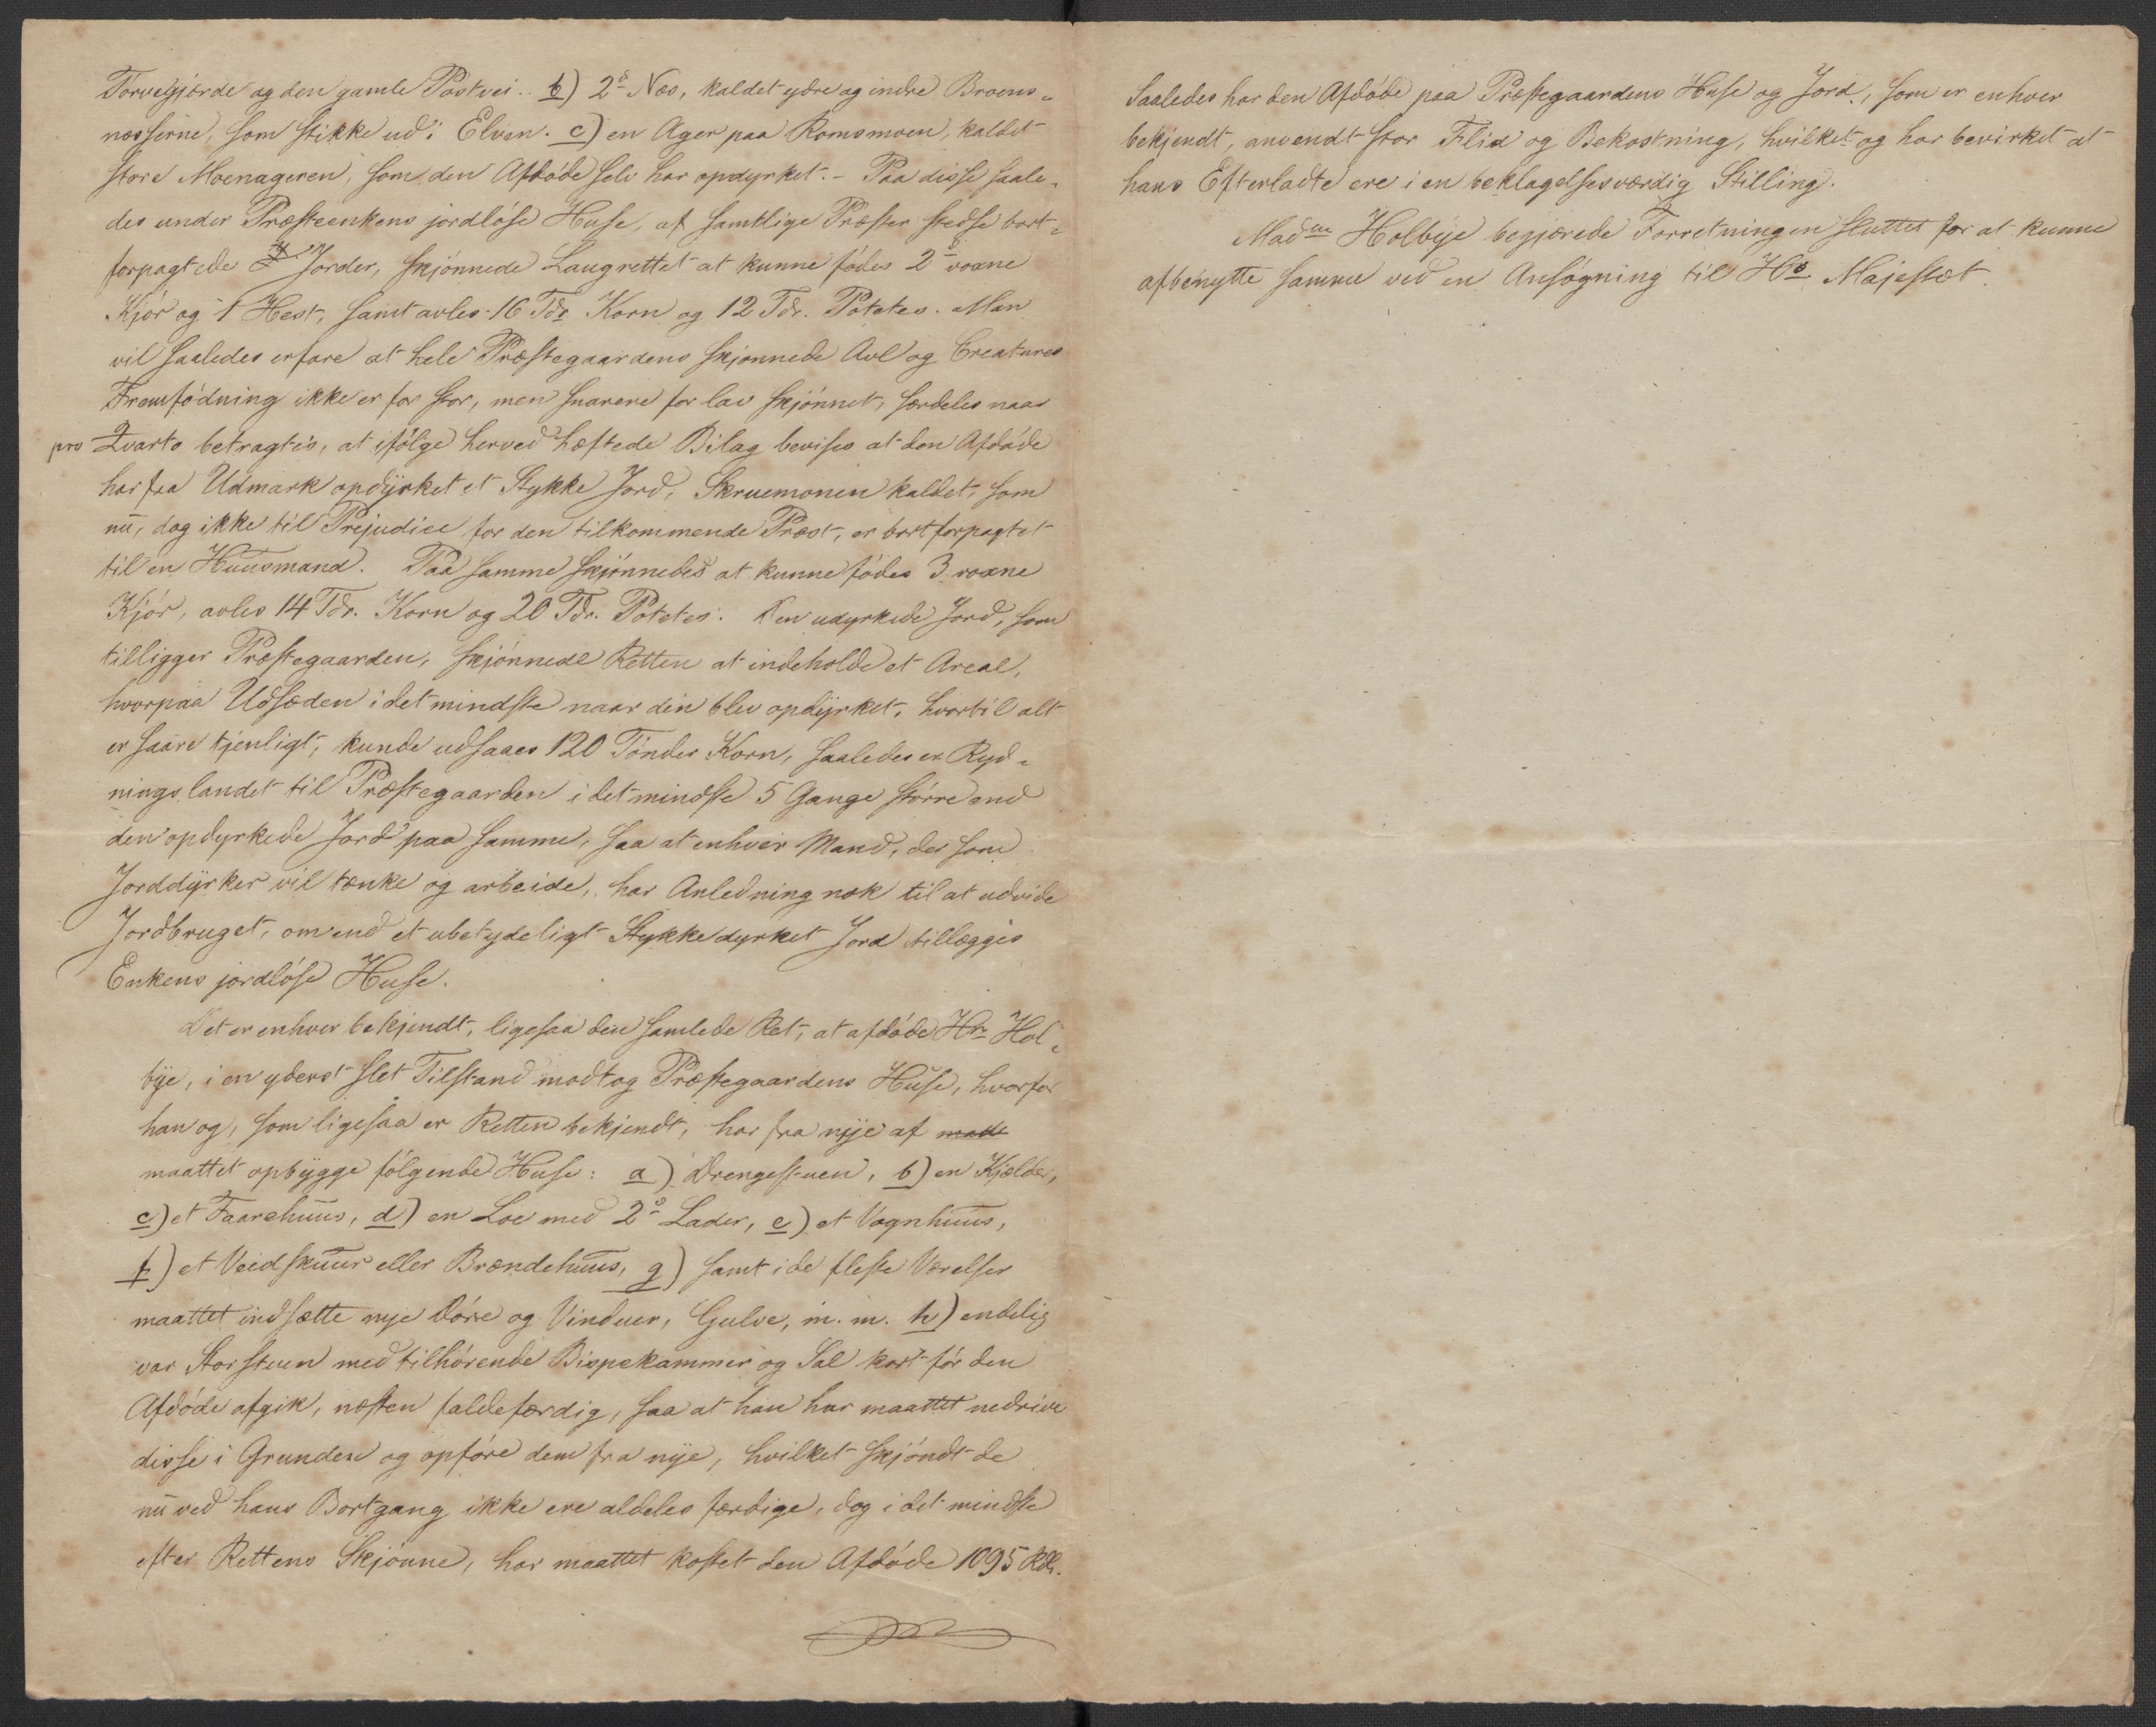 Torvegjærde og den gamle Postvei. b) 2de Næs, kaldet ydre og indre Broens-
næsserne, som stikke ud i Elven. c) en Ager paa Romsmoen, kaldet
store Moenageren, som den Afdøde selv har opdyrket. - Paa disse saale-
des under Præsteenkens jordløse Huse, af samtlige Præster stedse bort-
forpagtede Jorder, skjønnede Laugrettet at kunne fødes 2de voxne
Kjør og 1 Hest, samt avles 16 Tdr Korn og 12 Tdr. Potetes. Man
vil saaledes erfare at hele Præstegaardens skjønnede Avl og Creaturers
Fremfødning ikke er for stor, men snarere for lav skjønnet, særdeles naar
pro Qvarto betragtes, at ifølge herved hæftede Bilag bevises at den Afdøde
har fra Udmark opdyrket et Stykke Jord, Skruemonen kaldet, som
nu, dog ikke til Prejudice for den tilkommende Præst, er bortforpagtet
til en Huusmand. Paa samme skjønnedes at kunne fødes 3 voxne
Kjør, avles 14 Tdr. Korn og 20 Tdr. Potetes. Den udyrkede Jord, som
tilligger Præstegaarden, skjønnede Retten at indeholde et Areal,
hvorpaa Udsæden i det mindste naar den blev opdyrket, hvortil alt
er saare tjenligt, kunde udsaaes 120 Tønder Korn, saaledes er Ryd-
ningslandet til Præstegaarden i det mindste 5 Gange større end
den opdyrkede Jord paa samme, saa at enhver Mand, der som
Jorddyrker vil tænke og arbeide, har Anledning nok til at udvide
Jordbruget, om end et ubetydeligt Stykke dyrket Jord tillægges
Enkens jordløse Huse.
Det er enhver bekjendt, ligesaa den samlede Ret, at afdøde Hr. Hol-
bye, i en yderst slet Tilstand modtog Præstegaardens Huse, hvorfor
han og, som ligesaa er Retten bekjendt, har fra nye af
maattet opbygge følgende Huse: a) Drengestuen, b) en Kjælder,
c) et Faarehuus, d) en Loe med 2de Lader, e) et Vognhuus,
f) et Veedskuur eller Brændehuus, g) samt i de fleste Værelser
maattet indsætte nye Døre og Vinduer, Gulve, m. m. h) endelig
var Storstuen med tilhørende Bispekammer og Sal kort før den
Afdøde afgik, næsten faldefærdig, saa at han har maattet nedrive
disse i Grunden og opføre dem fra nye, hvilket skjøndt de
nu ved hans Bortgang ikke ere aldeles færdige, dog i det mindste
efter Rettens Skjønne, har maattet kostet den Afdøde 1095 Rdlr.
Saaledes har den Afdøde paa Præstegaardens Huse og Jord, som er enhver
bekjendt, anvendt stor Flid og Bekostning, hvilket og har bevirket at
hans Efterladte ere i en beklagelsesværdig Stilling.
Madme Holbye begjærede Forretningen sluttet for at kunne
afbenytte samme ved en Ansøgning til Hs Majestæt.